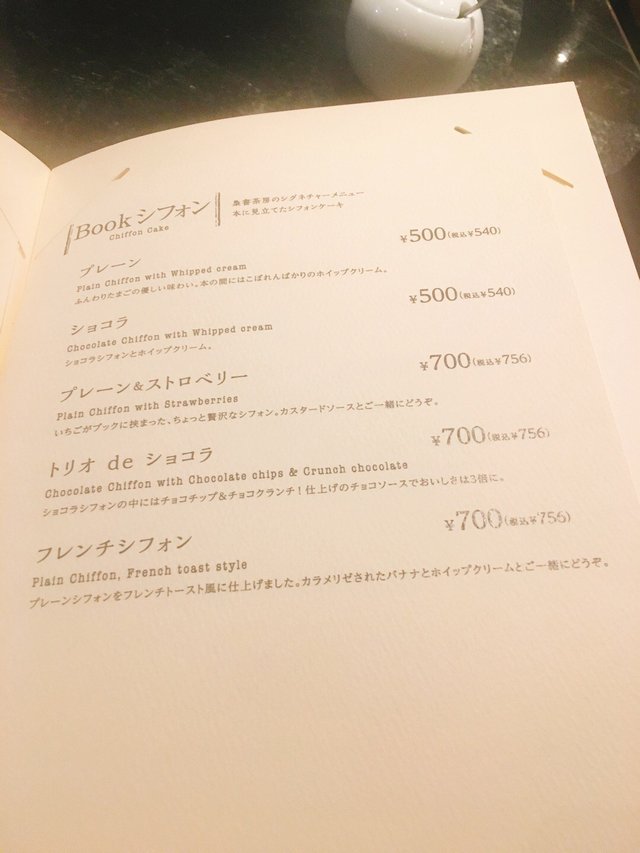 Book シフォン
Chiffon Cake
梟書茶房のシグネチャーメニュー
本に見立てたシフォンケーキ
プレーン
¥500(税込¥540)
Plain Chiffon with Whipped cream
ふんわりたまごの優しい味わい。本の間にはこぼれんばかりのホイップクリーム。
ショコラ
¥500(税込¥540)
Chocolate Chiffon with Whipped cream
ショコラシフォンとホイップクリーム。
プレーン&ストロベリー
¥700(税込¥756)
Plain Chiffon with Strawberries
いちごがブックに挟まった、ちょっと贅沢なシフォン。カスタードソースとご一緒にどうぞ。
トリオ de ショコラ
¥700(税込¥756)
Chocolate Chiffon with Chocolate chips & Crunch chocolate
ショコラシフォンの中にはチョコチップ&チョコクランチ!仕上げのチョコソースでおいしさは3倍に。
フレンチシフォン
¥700(税込¥756)
Plain Chiffon, French toast style
プレーンシフォンをフレンチトースト風に仕上げました。カラメリゼされたバナナとホイップクリームとご一緒にどうぞ。